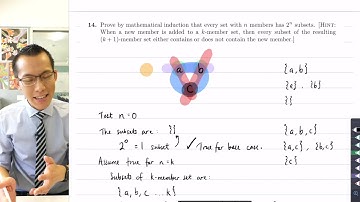 14. Prove by mathematical induction that every set with n members has 2ⁿ subsets. [HINT:
When a new member is added to a k-member set, then every subset of the resulting
(k + 1)-member set either contains or does not contain the new member.]
a b
c
{a,b}
{a}, {b}
{}
Test n=0
The subsets are: {}
2⁰ = 1 subset ✓ True for base case.
Assume true for n=k
Subsets of k-member set are:
{a, b, c ... k}
{a,b,c}
{a,c}, {b,c}
{c}